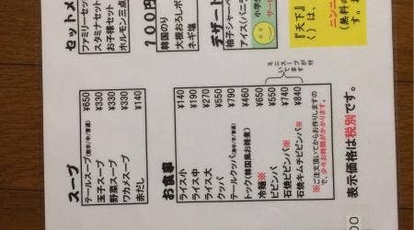 セットメ
ファミリーセット
スタミナセット
お子様セット
ホルモン三点
100円
韓国のり
大根おろしポ
ネギ塩
デザート
柚子シャーベ
アイス(バニ
小学
サー
『天下
く)は、
ニンニ
(無料の
す。
スープ
テールスープ ¥650
玉子スープ ¥330
野菜スープ ¥330
ワカメスープ ¥330
赤だし ¥140
お食事
ライス小 ¥140
ライス中 ¥190
ライス大 ¥270
クッパ ¥550
テールクッパ ¥790
トック(韓国風お雑煮) ¥460
冷麺※ ¥650
ビビンバ ¥550
石焼ビビンバ※ ¥740
石焼キムチビビンバ※ ¥840
ミニスープが付
いてます
※ご注文頂いてからお作りしますの
で、少々お時間がかかります。
表示価格は税別です。